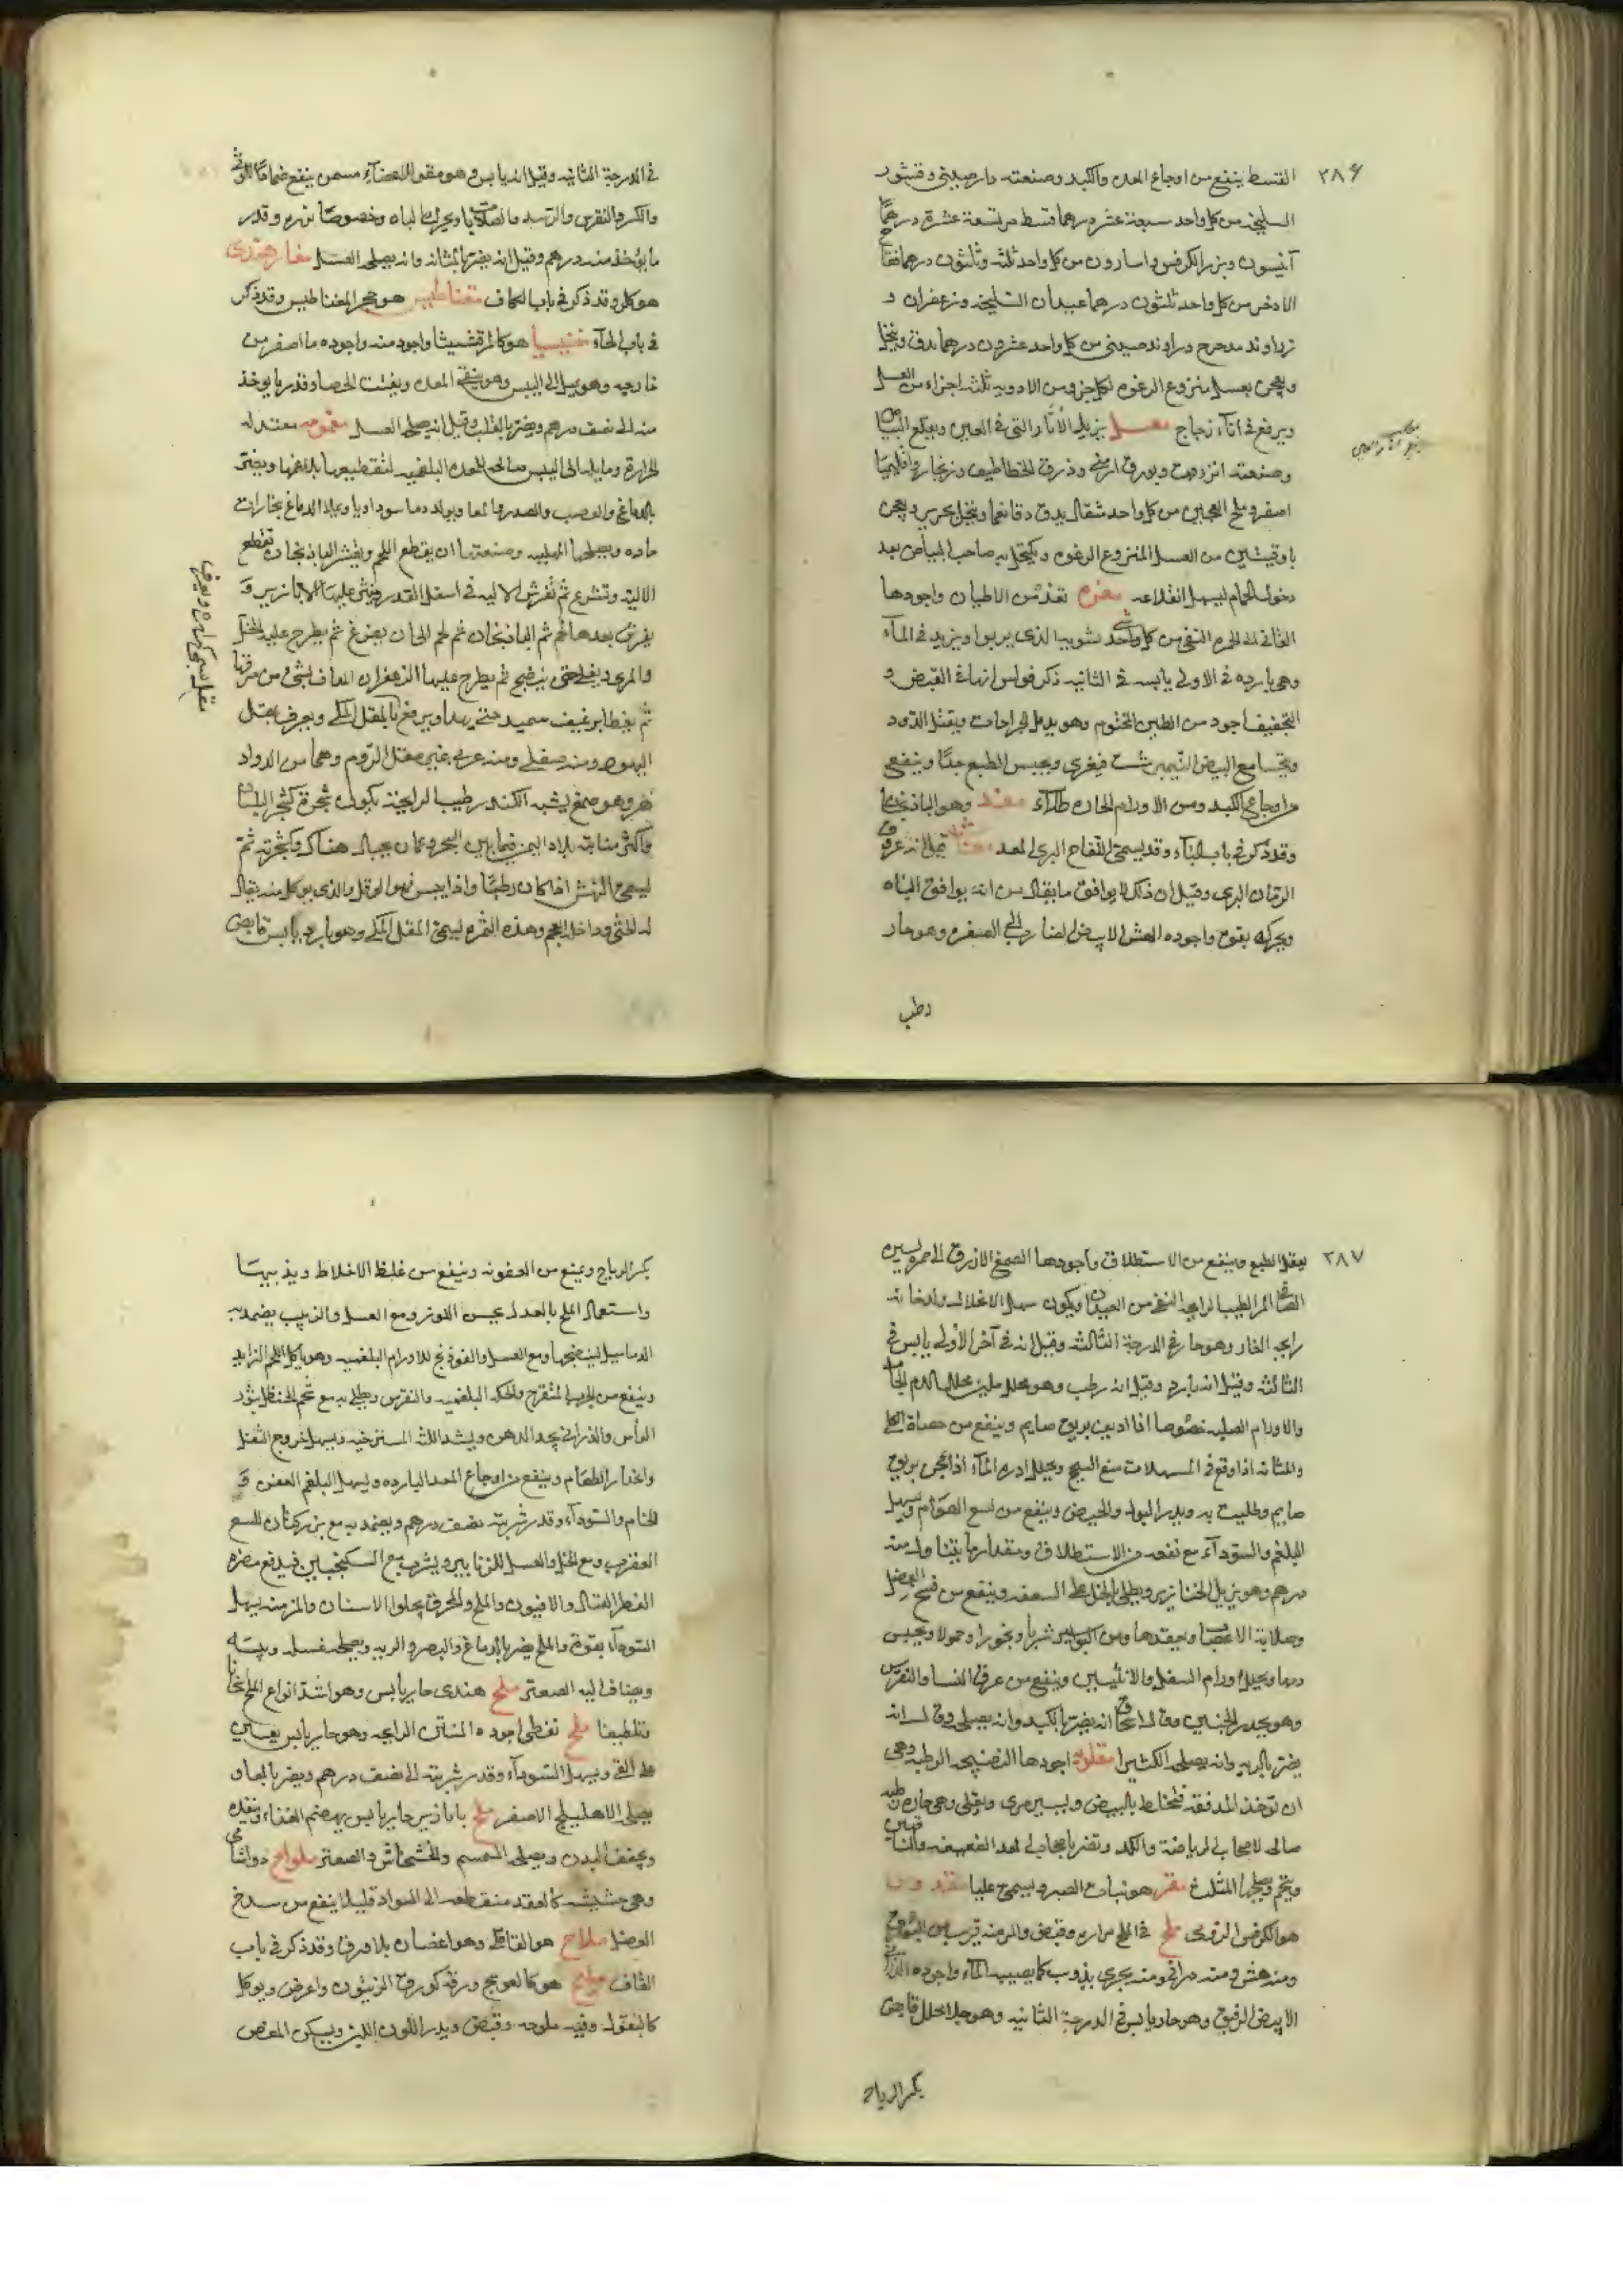 ٢٨٦
القسط ينفع من اوجاع المعده والكبد وصنعته دارصيني وقشور
السليخه من كل واحد سبعة عشر درهما قسط مر تسعة عشرة درهما
آنيسون وبزر الكرفس واسارون من كل واحد ثلثه وثلثون درهما فقاح
الاذخر من كل واحد ثلثون درهما عيدان السليخه وزعفران و
زراوند مدحرج وراوند صيني من كل واحد عشرون درهما يدق وينخل
ويعجن بعسل منزوع الرغوه لكل جزو من الادويه ثلثه اجزاء من العسل
ويرفع في انآء زجاج معسل يزيل الأثار التي في العين ويقلع البياض
وصنعته انزروت وبورق ارمني وذرق الخطاطيف وزنجار واقليميا
اصفر وملح العجين من كل واحد مثقال يدق دقا نعما وينخل بحرير ويعجن
باوقيتين من العسل المنزوع الرغوه ويكتحل به صاحب البياض بعد
دخول الحمام ليسهل انقلاعه مغره تعد من الاطيان واجودها
القاني الى الحمره النقي من كل واحد شوبها الذي يربوا ويزيد في المآء
وهي بارده في الاولى يابسه في الثانيه ذكر فولس انها في القبض و
التجفيف اجود من الطين المختوم وهو يدمل الجراحات ويقتل الدود
ويتحسا مع البيض النيمبرشت فيغرى ويحبس الطبع جدا وينفع
من اوجاع الكبد ومن الاورام الحاره طلآء مغد وهو الباذنجان
وقد ذكر في باب البآء وقد يسمى التفاح البري المعد مغاث قيل انه عروق
الرمان البري وقيل ان ذلك لا يوافق ما يقال من انه يوافق الباه
ويحركه بقوه واجوده الهش الابيض الضارب الى الصفره وهو حار
رطب
في الدرجة الثانيه وقيل انه يابس وهو مقو للاعضآء مسمن ينفع ضمادا للوثي
والكسر والنقرس
ما يؤخذ منه درهم وقيل انه يضر بالمثانه وانه يصلحه العسل مغار هندى
هو كلر وقد ذكر في باب الكاف مغناطيس هو حجر المغناطيس وقد ذكر
في باب الحآء مغنيسيا هو كالمرقشيثا واجود منه واجوده ما اصفر من
خارجه وهو يميل الى اليبس وهو ينقي المعده ويفتت الحصا وقدر ما يوخذ
منه الى نصف درهم ويضر بالقلب وقيل انه يصلحه العسل مغمومه معتدله
الحرارة ومايله الى اليبس صالحه للمعده البلغميه لتقطيعها بلاغمها ويضر
بالدماغ والعصب والصدر والمعا ويولد دما سوداويا ويملا الدماغ بخارات
حاده ويصلحها المهلبيه وصنعتها ان يقطع اللحم ويقشر الباذنجان وتقطع
الاليه وتشرح ثم تفرش الاليه في اسفل القدر وينثر عليها الابازير و
يفرش بعدها لحم ثم الباذنجان ثم لحم الى ان يفرغ ثم يطرح عليه الخل
والمري ويغلى حتى ينضج ثم يطرح عليها الزعفران المداف بشئ من مرقها
ثم يغطا برغيف سميد حتى يهدا ويرفع مقل المكي ويعرف بمقل
اليهود ومنه صقلي ومنه عربي غير مقل الروم وهما من الدواد
هر وهو صمغ يشبه الكندر طيب الرايحة يكون شجره كشجر اللبان
واكثر منابته بلاد اليمن فيما بين الشحر وعمان بجبال هناك وشجرته ثم
ليسمى النهش اذا كان رطبا واذا يبس فهو الوقل والذي يوكل منه يقال
له الحتي وداخله العجم وهذه الثمره تسمى المقل المكي وهو بارد يابس قابض
٢٨٧
يعقل الطبع وينفع من الاستطلاق واجودها الصمغ الازرق الى حمره يسيره
الصافى المر الطيب الرايحه النقي من العيدان ويكون سهل الانحلال ولدخانه
رايحه الغار وهو حار في الدرجة الثالثه وقيل انه في آخر الأولى يابس في
الثالثه وقيل انه بارد وقيل انه رطب وهو محلل ملين محلل الدم الجامد
والاورام الصلبه خصوصا اذا اديف بريق صايم وينفع من حصاة الكلى
والمثانه اذا وقع في المسهلات منع السحج ويحلل ادره المآء اذا عجن بريق
صايم وطليت به ويدر البول والحيض وينفع من لسع الهوام ويسهل
البلغم والسودآء مع نفعه من الاستطلاق ومقدار ما يتناول منه
درهم وهو يزيل الخنازير ويطلى بالخل على السعفه وينفع من فسخ العضل
وصلابة الاعصاب وتعقدها ومن البواسير شربا وبخورا وحمولا ويحبس
دمها ويحلل اورام السفل والانثيين وينفع من عرق النسا والنقرس
وهو يحدر الجنين وقال اسحاق انه يضر بالكبد وانه يصلحه وقال انه
يضر بالريه وانه يصلحه الكثيرا مقلوبه اجودها النضيجه الرطبه وهي
ان توخذ المدققه فتخلط بالبيض ويسير مرى وتقلى وهي حاره رطبه
صالحه لاصحاب الرياضة والكد وتضر باصحاب المعد الضعيفه والناقهين
ويتخم ويصلحها المثلث مقر هو نبات الصبر ويسمى عليا مقدونس
هو الكرفس الرومى ملح في الملح مراره وقبض والمر منه قريب من البورق
ومنه هش ومنه دراني ومنه بحري يذوب كما يصيبه المآء واجوده الدراني
الابيض الرقيق وهو حار يابس في الدرجة الثانيه وهو جلا محلل قابض
يكسر الرياح
يكسر الرياح ويمنع من العفونه وينفع من غلظ الاخلاط ويذيبها
واستعمال الملح بالعدل يحسن اللون ومع العسل والزبيب يضمد به
الدماميل لينضجها ومع العسل والفوذنج للاورام البلغميه وهو ياكل اللحم الزايد
وينفع من الجرب المتقرح والحكه البلغميه والنقرس ويطلى به مع شحم الحنظل بثور
الرأس والدراني يحد الذهن ويشد اللثه المسترخيه ويسهل خروج الثفل
وانحدار الطعام وينفع من اوجاع المعد البارده ويسهل البلغم العفن و
الخام والسودآء وقدر شربته نصف درهم ويضمد به مع بزر كتان للسع
العقرب ومع الخل والعسل للزنابير ويشرب مع السكنجبين فيدفع مضره
الفطر القتال والافيون والملح والمحرق يجلوا الاسنان والمر منه يسهل
السودآء بقوة والملح يضر بالدماغ والبصر والريه ويصلحه غسله وشيه
ويضاف اليه الصعتر ملح هندى حار يابس وهو اشد انواع الملح اسخانا
وتلطيفا ملح نفطى اجوده المنتن الرايحه وهو حار يابس يعين
على القي ويسهل السودآء وقدر شربته الى نصف درهم ويضر بالمعا و
يصلحه الاهليلج الاصفر ملح بابازير حار يابس يهضم الغذاء وينفذه
ويجفف البدن ويصلحه السمسم والخشخاش والصعتر ملواح دواشامى
وهي حشيشه كالعقد منقطعه الى السواد قليلا ينفع من سلخ
العضل ملاح هو القاقلى وهو اغصان بلا ورق وقد ذكر في باب
القاف ملوح هو كالعوسج ورقه كورق الزيتون واعرض ويوكل
كالبقول وفيه ملوحه وقبض ويدر اللبن ويسكن المغص